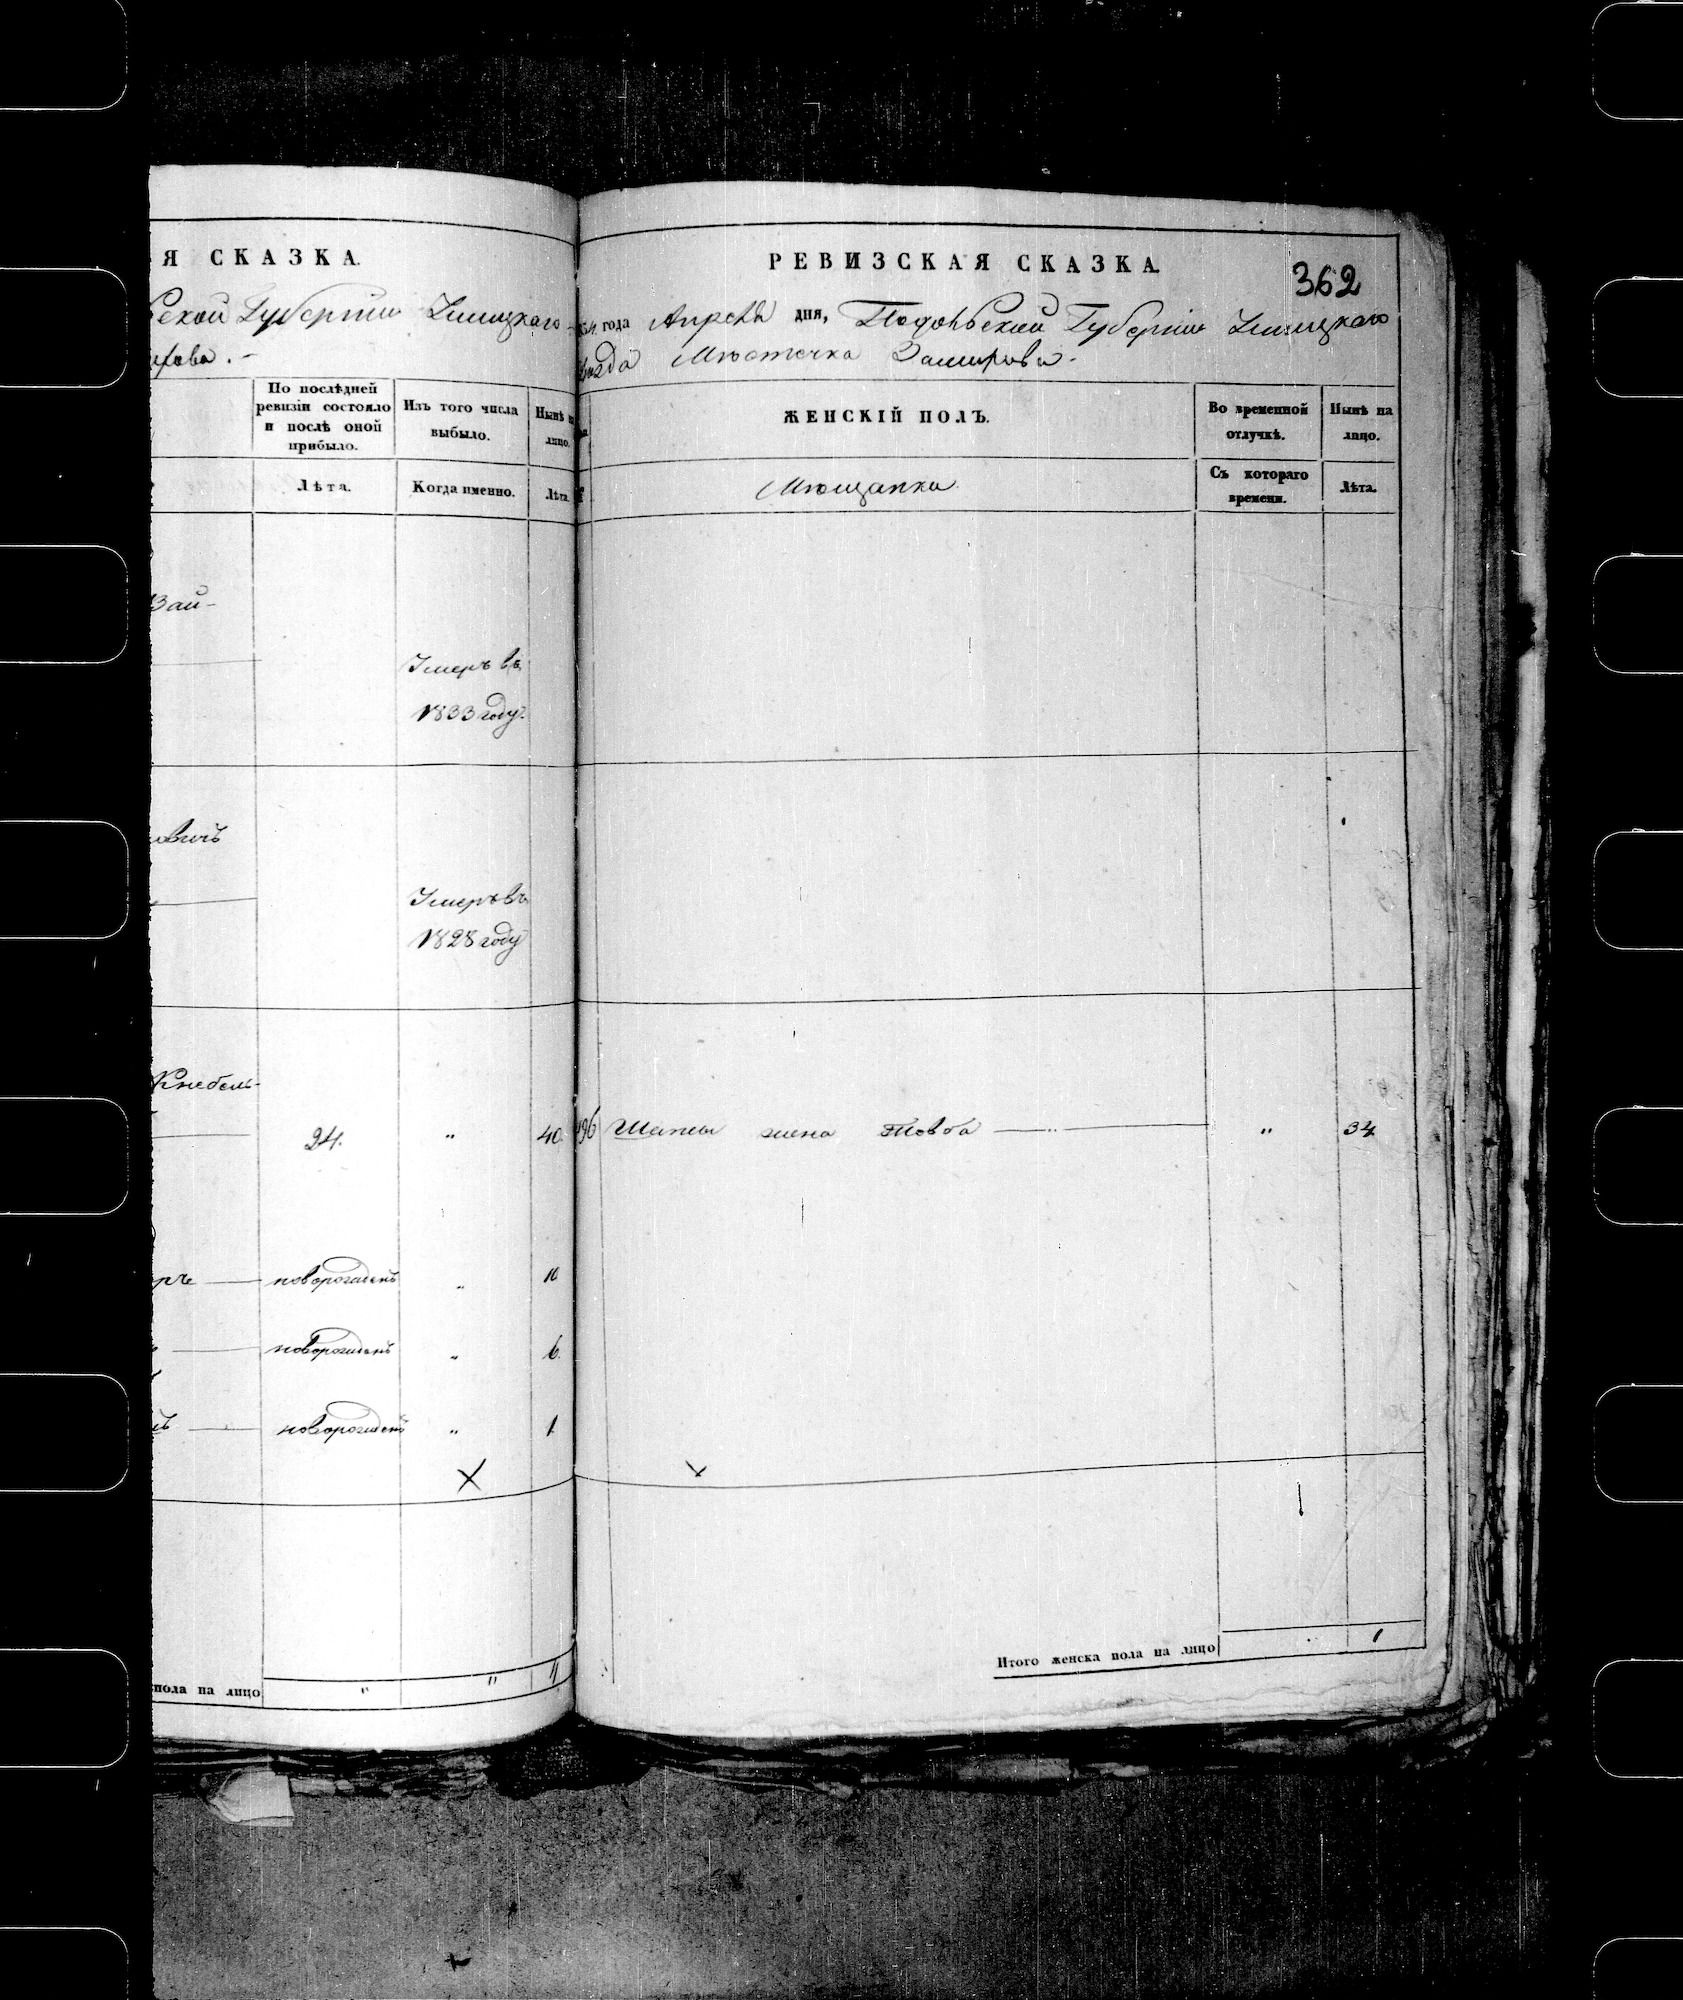 Я СКАЗКА.
Губерніи Ушицкаго
По послѣдней
ревизіи состояло
и послѣ оной
прибыло.
Изъ того числа
выбыло.
Нынѣ на
лицо.
Лѣта.
Когда именно.
Лѣта.
Зай-
Умеръ въ
1833 году.
овичъ
Умеръ въ
1828 году
Кнебель-
24.
"
40.
новорожденъ
"
10
новорожденъ
"
6.
новорожденъ
"
1
пола на лицо
"
"
РЕВИЗСКАЯ СКАЗКА.
362
года Апрѣля дня, Подольской Губерніи Ушицкаго
Мѣстечка Замѣхова.
ЖЕНСКІЙ ПОЛЪ.
Во временной
отлучкѣ.
Нынѣ на
лицо.
Мѣщанки.
Съ котораго
времени.
Лѣта.
196 жена Товба
"
34
Итого женска пола на лицо
1